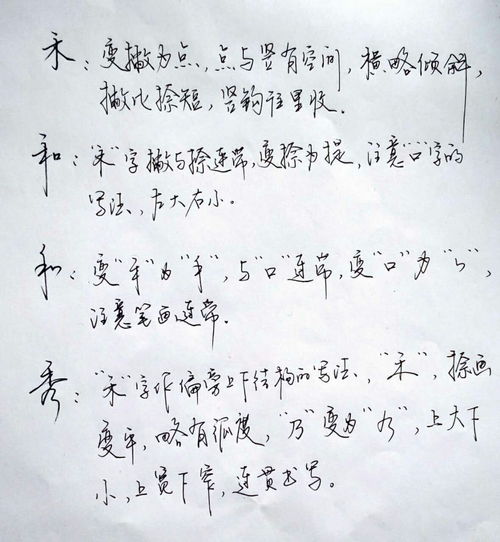 禾：变撇为点，点与竖有空间，横略倾斜，
撇比捺短，竖钩往里收.
和："禾"字撇与捺连带，变捺为提，注意"口"字的
写法，左大右小。
和：变"禾"为"手"，与"口"连带，变"口"为"ㄣ"，
注意笔画连带.
秀："禾"字作偏旁上下结构的写法、"禾"，捺画
变平，略有弧度，"乃"变为"乃"，上大下
小，上宽下窄，连贯书写。